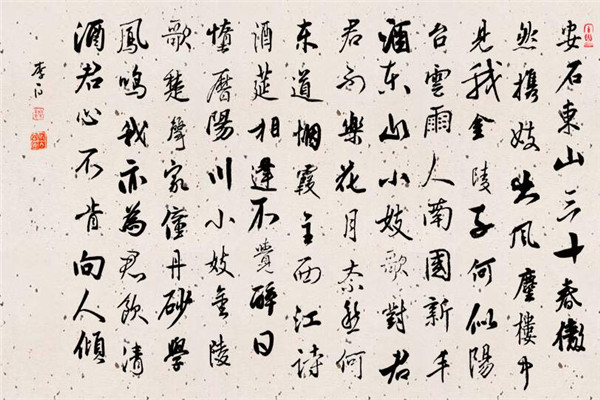 安石東山三十春傲
然携妓出風塵樓中
見我金陵子何似陽
台雲雨人南國新丰
酒東山小妓歌對君
君不樂花月奈愁何
东道烟霞主西江詩
酒筵相逢不覺醉日
墮曆陽川小妓金陵
歌楚聲家僮丹砂學
鳳鳴我亦為君飲清
酒君心不肯向人傾
李白